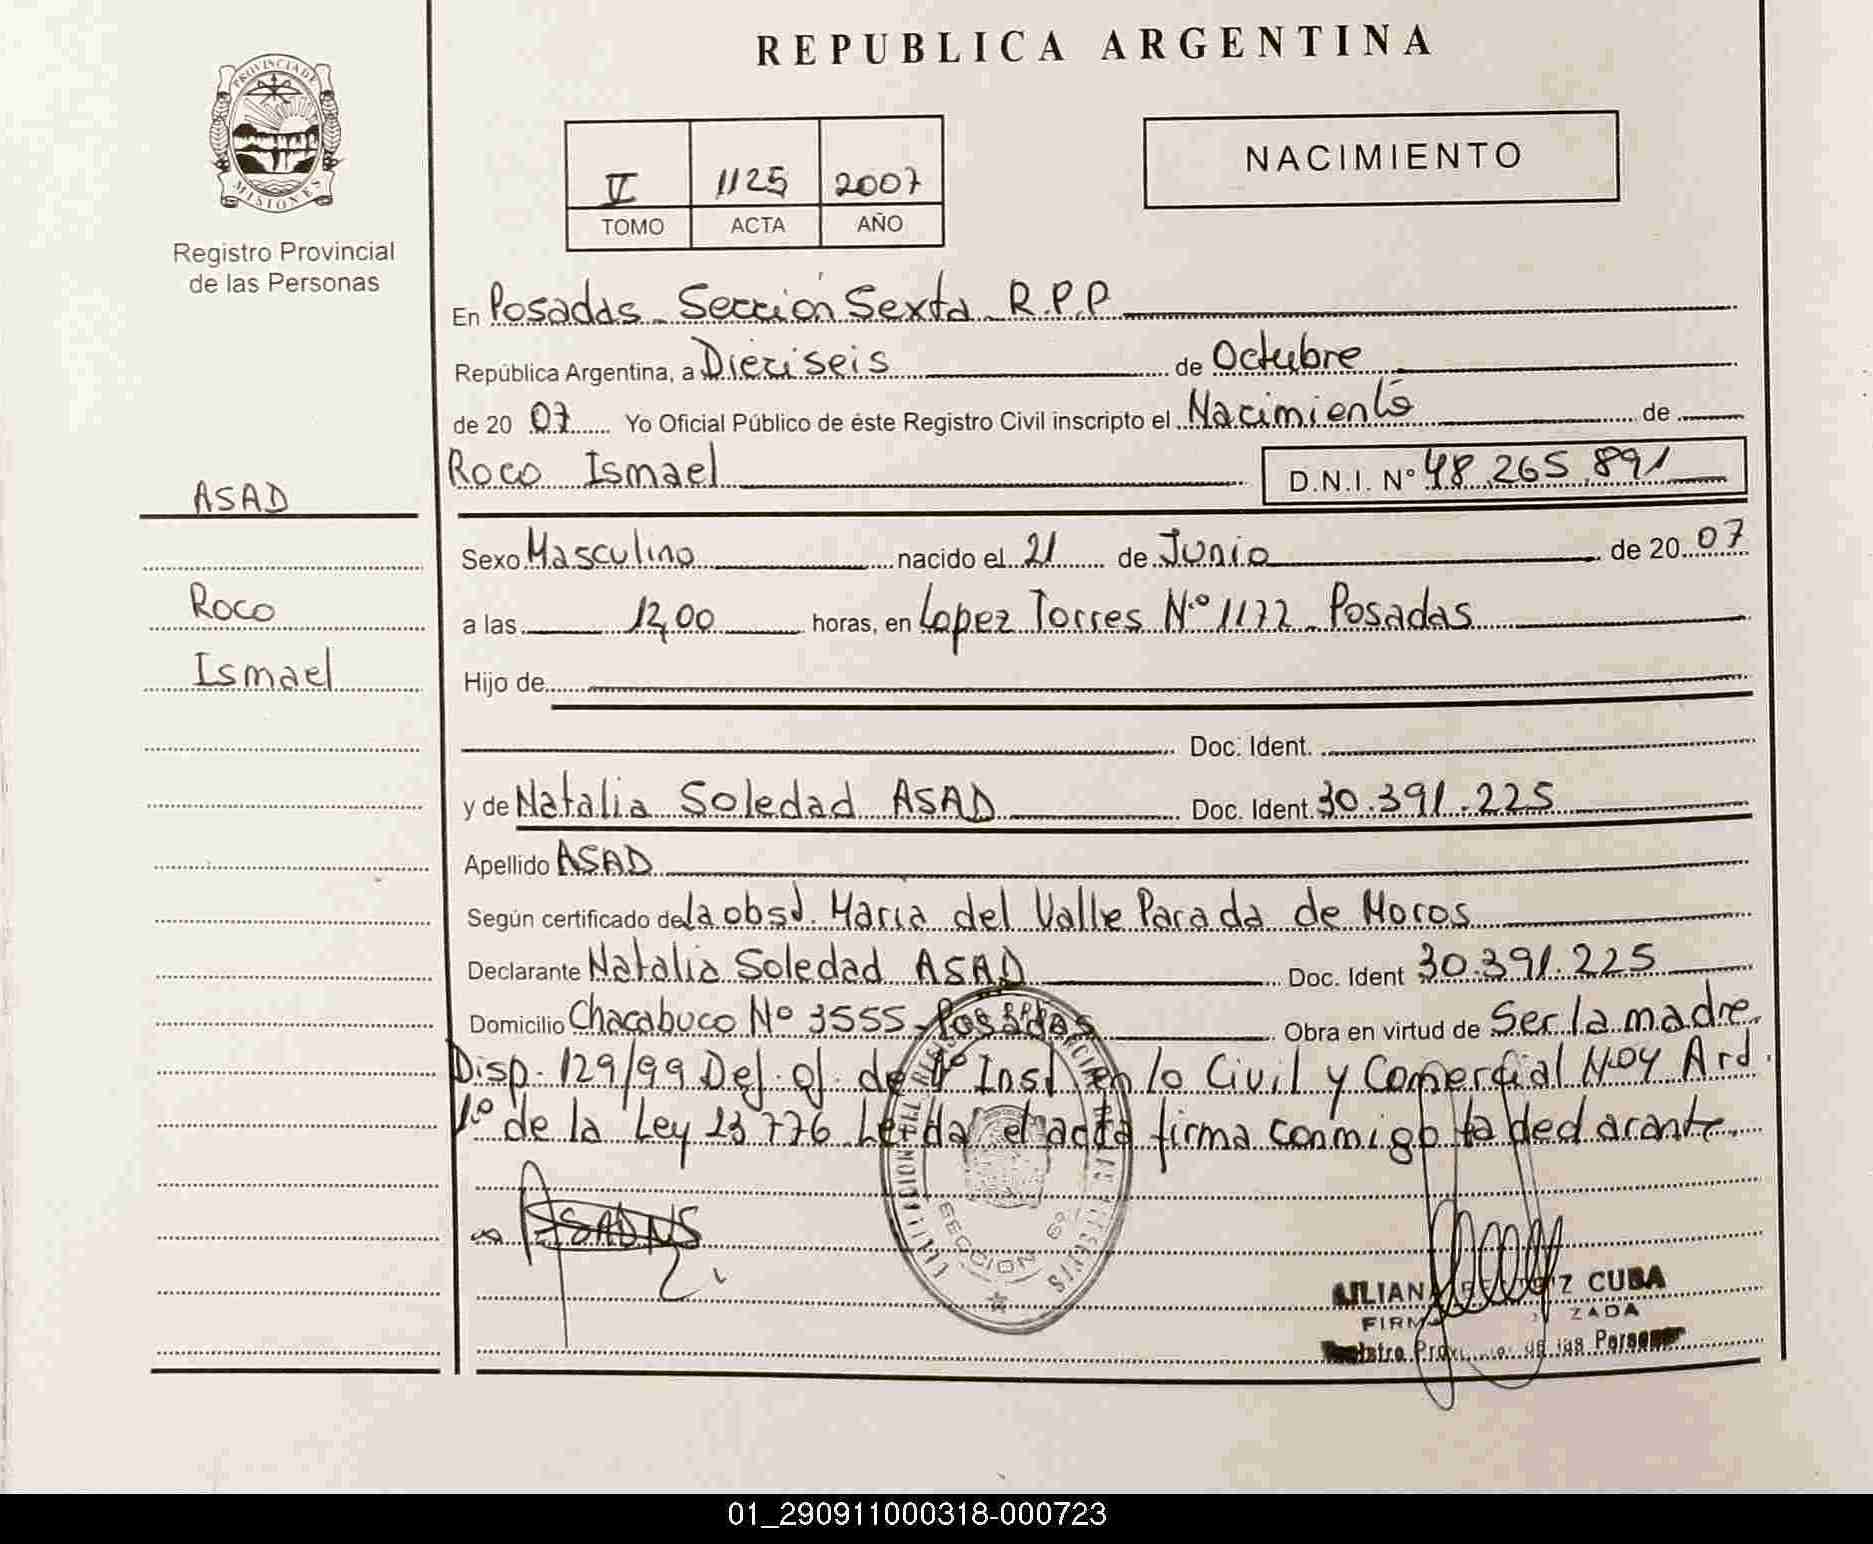 REPUBLICA ARGENTINA
PROVINCIA DE
MISIONES
Registro Provincial
de las Personas
V 1125 2007
TOMO ACTA AÑO
NACIMIENTO
En Posadas Sección Sexta R.P.P
República Argentina, a Dieciseis de Octubre
de 20 07 Yo Oficial Público de éste Registro Civil inscripto el Nacimiento de
Roco Ismael D.N.I. Nº 48.265.891
ASAD
Roco
Ismael
Sexo Masculino nacido el 21 de Junio de 20 07
a las 12,00 horas, en Lopez Torres Nº 1172 Posadas
Hijo de
Doc. Ident.
y de Natalia Soledad ASAD Doc. Ident. 30.391.225
Apellido ASAD
Según certificado de la obst. Maria del Valle Parada de Moros
Declarante Natalia Soledad ASAD Doc. Ident 30.391.225
Domicilio Chacabuco Nº 3555 Posadas Obra en virtud de Ser la madre.
Disp. 129/99 Def. of. de 1º Inst en lo Civil y Comercial Nº 04 Ard.
1º de la Ley 23776 Leida el acta firma conmigo la declarante.
ASAD NS
SECCION 6º
LILIANA CUBA
01_290911000318-000723